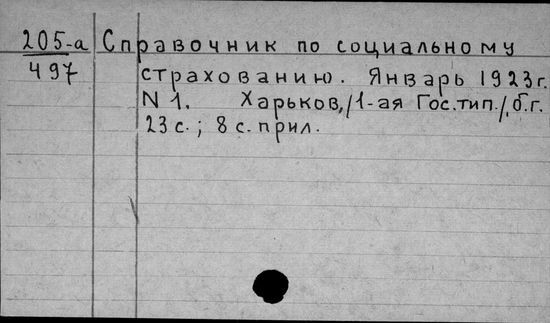 205-а Справочник по социальному
497 страхованию. Январь 1923г.
N 1. Харьков, /1-ая Гос.тип./, б.г.
23 с.; 8 с. прил.